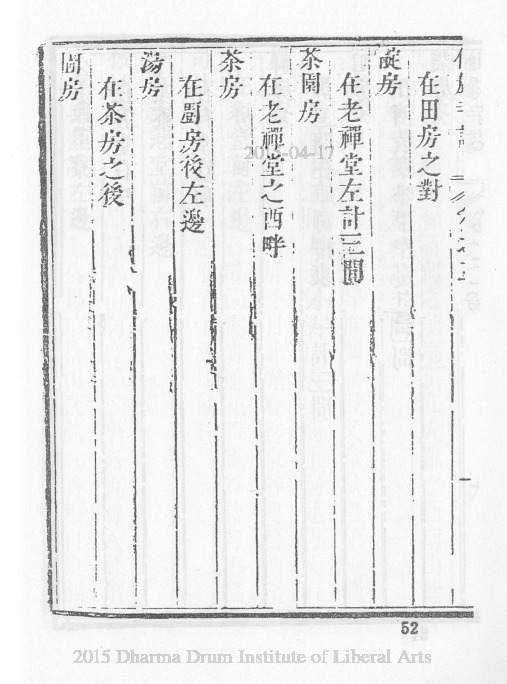 在田房之對
靛房
在老禪堂左計三間
茶園房
在老禪堂之西畔
茶房
在厨房後左邊
湯房
在茶房之後
房
04-17
52
2015 Dharma Drum Institute of Liberal Arts